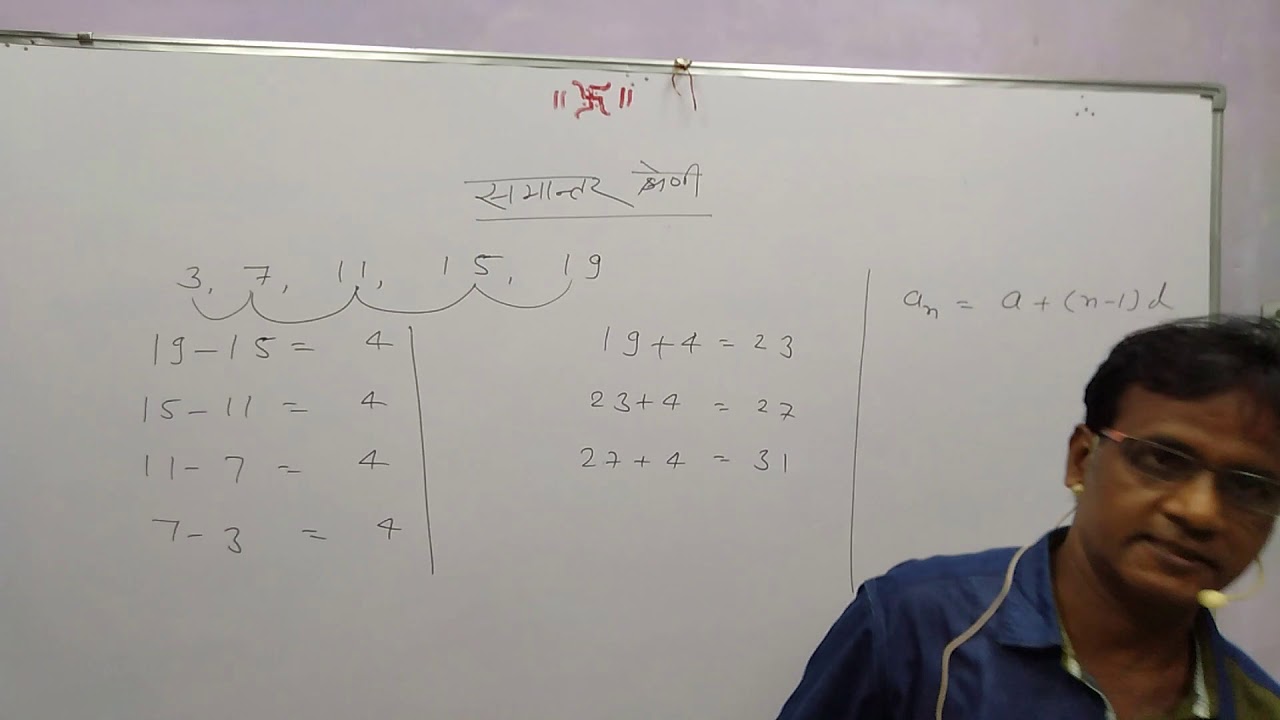 ॥ 卐 ॥
समान्तर श्रेणी
3, 7, 11, 15, 19
19-15 = 4
15-11 = 4
11-7 = 4
7-3 = 4
19+4 = 23
23+4 = 27
27+4 = 31
aₙ = a+(n-1)d